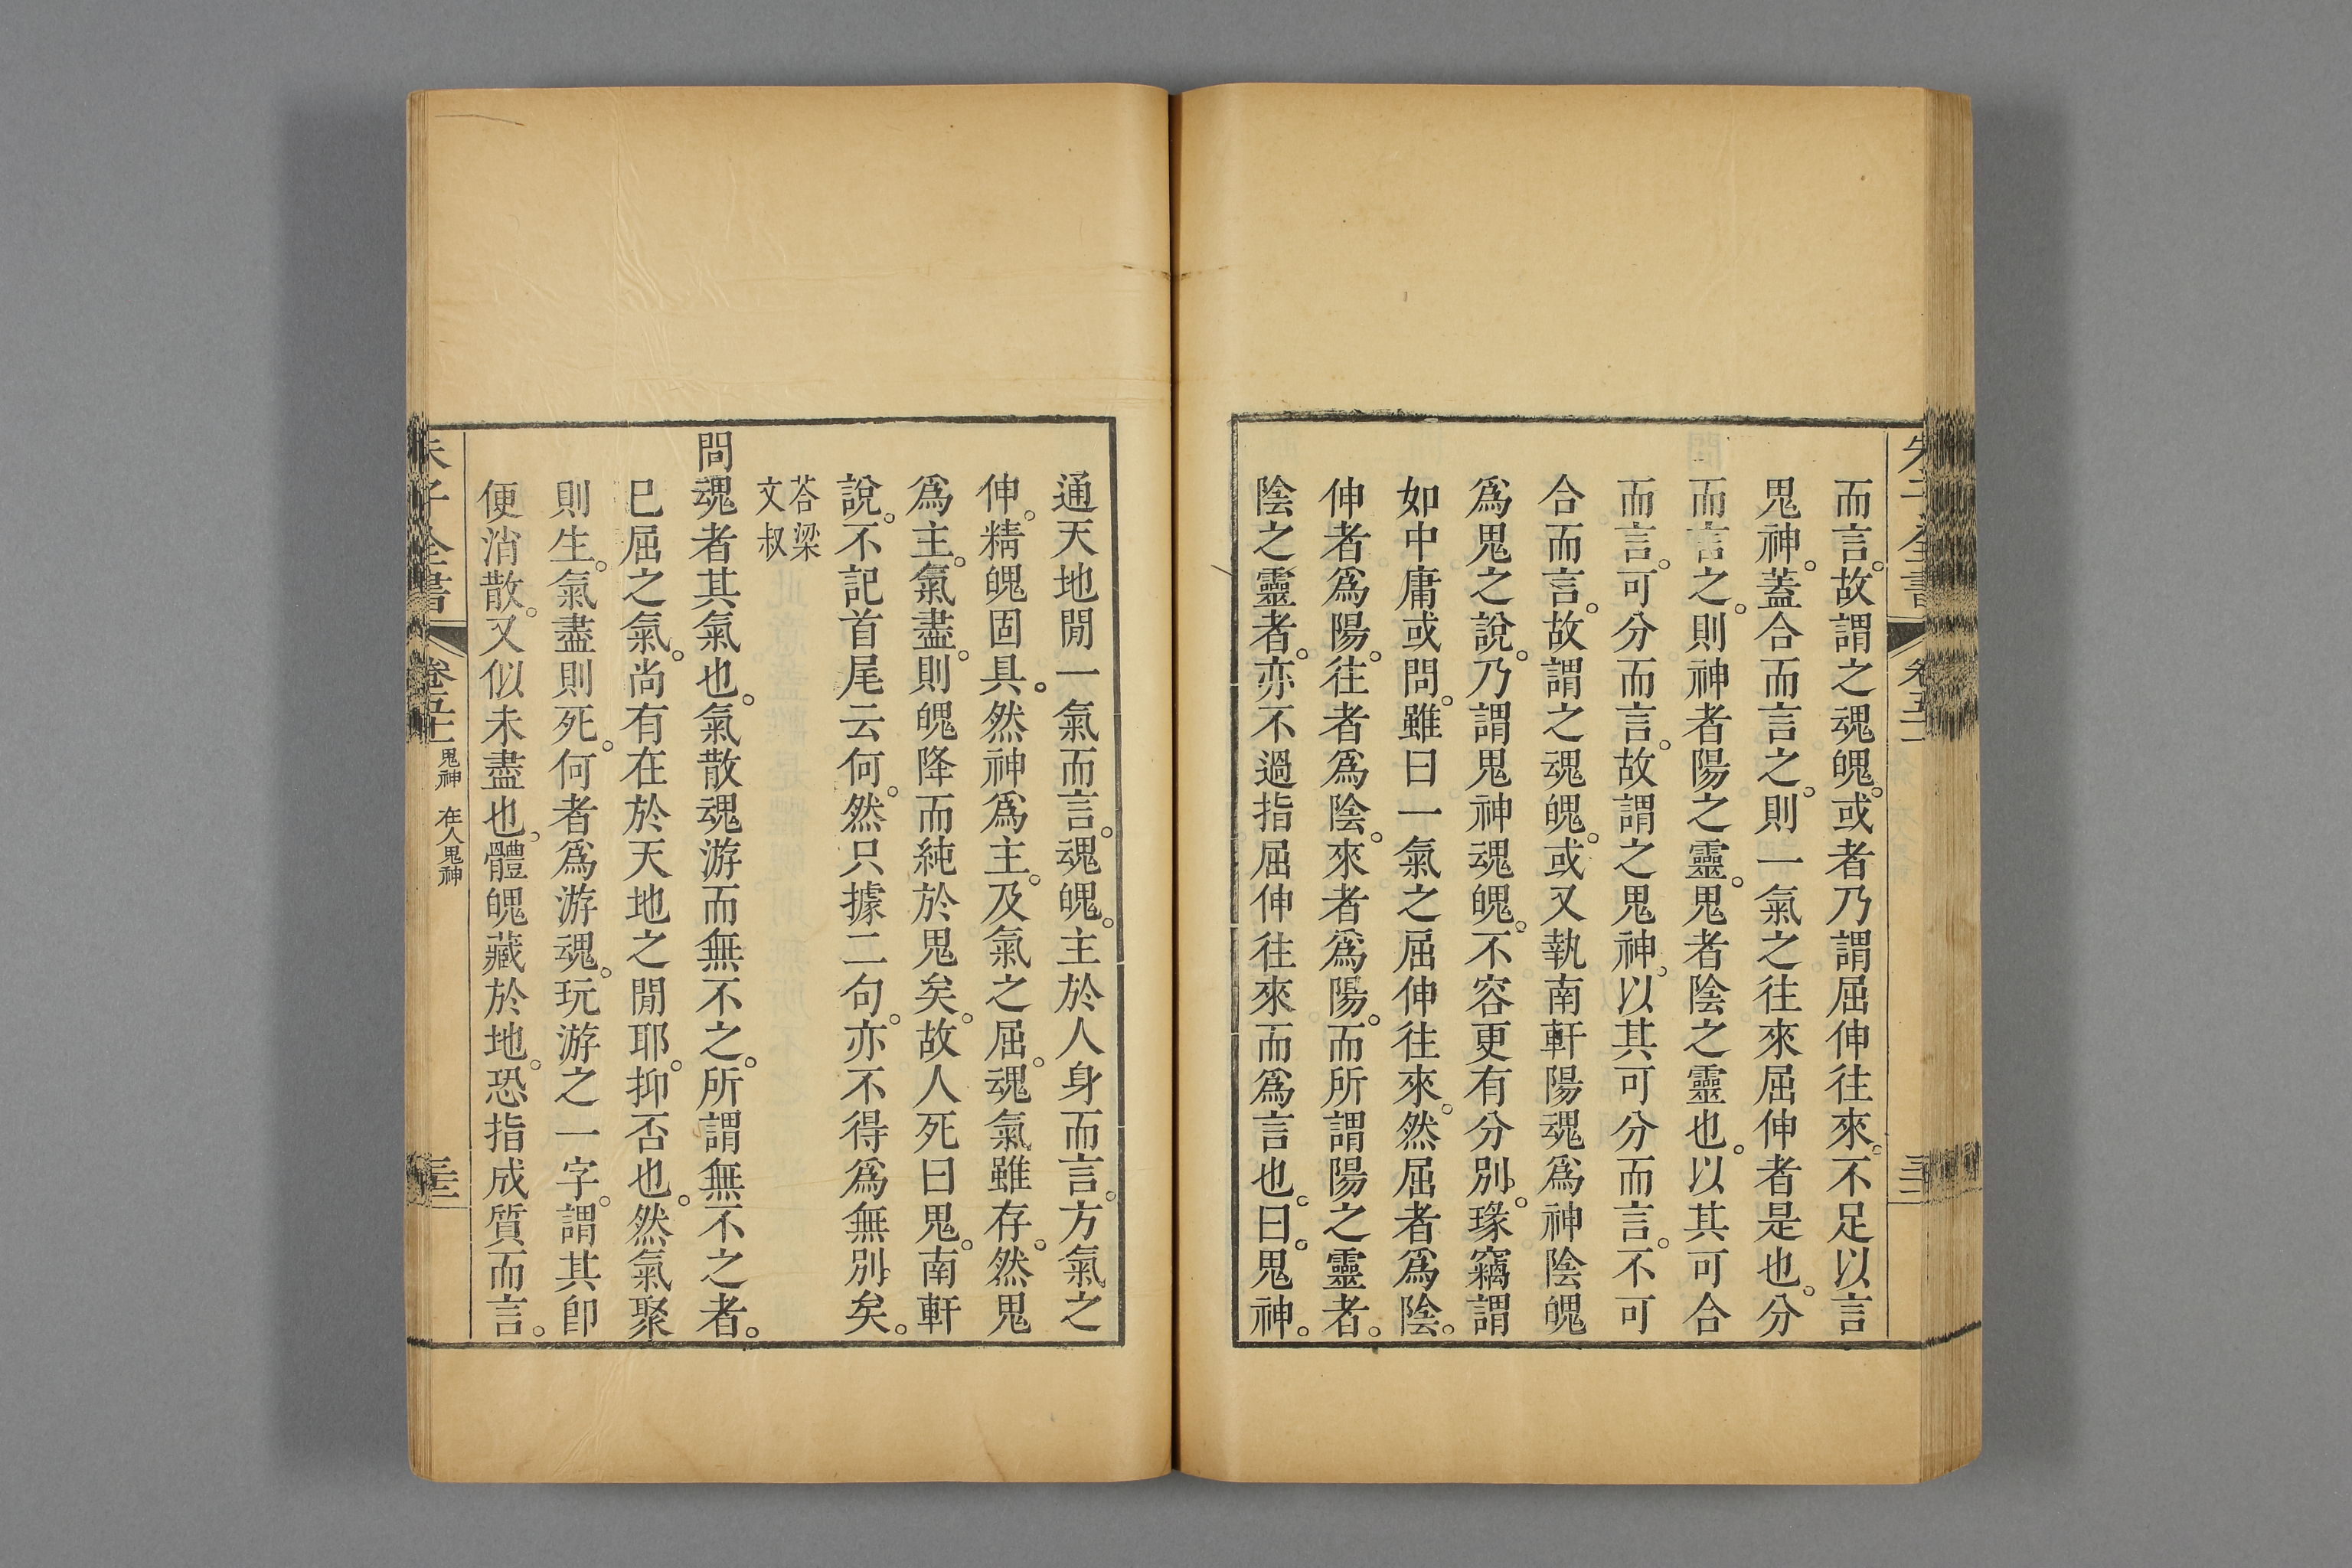 而言。故謂之魂魄。或者乃謂屈伸往來。不足以言
鬼神。蓋合而言之。則一氣之往來屈伸者是也。分
而言之。則神者陽之靈。鬼者陰之靈也。以其可合
而言。可分而言。故謂之鬼神。以其可分而言。不可
合而言。故謂之魂魄。或又執南軒陽魂爲神陰魄
爲鬼之說。乃謂鬼神魂魄。不容更有分別。瑑竊謂
如中庸或問。雖曰一氣之屈伸往來。然屈者爲陰。
伸者爲陽。往者爲陰。來者爲陽。而所謂陽之靈者。
陰之靈者。亦不過指屈伸往來而爲言也。曰。鬼神。
通天地閒一氣而言。魂魄。主於人身而言。方氣之
伸。精魄固具。然神爲主。及氣之屈。魂氣雖存。然鬼
爲主。氣盡。則魄降而純於鬼矣。故人死曰鬼。南軒
說。不記首尾云何。然只據二句。亦不得爲無別矣。
荅梁
文叔
問魂者其氣也。氣散魂游而無不之。所謂無不之者。
已屈之氣。尚有在於天地之閒耶。抑否也。然氣聚
則生。氣盡則死。何者爲游魂。玩游之一字。謂其卽
便消散。又似未盡也。體魄藏於地。恐指成質而言。
子全書
卷五十一
鬼神 在人鬼神